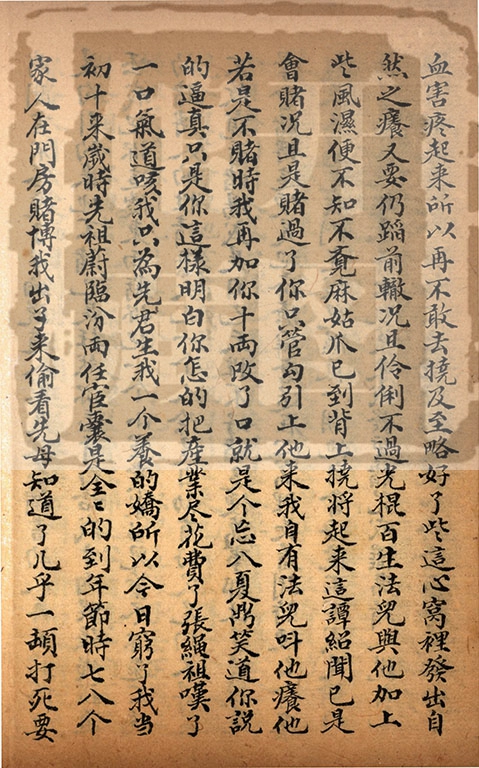 血害疼起来所以再不敢去撓及至略好了些這心窩裡發出自
然之癢又要仍蹈前轍况且伶俐不過光棍百生法兒與他加上
些風濕便不知不覔麻姑爪已到背上撓將起来這譚紹聞已是
會賭况且是賭過了你只管勾引上他来我自有法兒呌他癢他
若是不賭時我再加你十兩改了口就是个忘八夏鼎笑道你說
的逼真只是你這樣明白你怎的把産業尽花費了張繩祖嘆了
一口氣道咳我只為先君生我一个養的嬌所以今日窮了我當
初十来歲時先祖蔚臨汾兩任官囊是全〻的到年節時七八个
家人在門房賭博我出了来偷看先母知道了几乎一頓打死要